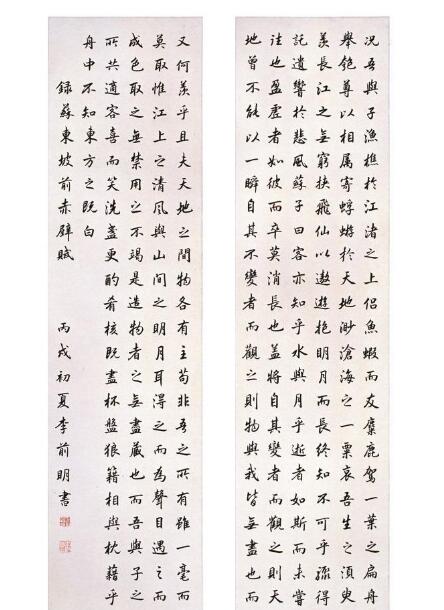 況吾與子漁樵於江渚之上侶魚蝦而友麋鹿駕一葉之扁舟
舉匏尊以相属寄蜉蝣於天地渺滄海之一粟哀吾生之須臾
羨長江之無窮挾飛仙以遨遊抱明月而長終知不可乎驟得
託遺響於悲風蘇子曰客亦知乎水與月乎逝者如斯而未嘗
往也盈虛者如彼而卒莫消長也蓋將自其變者而觀之則天
地曾不能以一瞬自其不變者而觀之則物與我皆無盡也而
又何羨乎且夫天地之間物各有主苟非吾之所有雖一毫而
莫取惟江上之清風與山間之明月耳得之而為聲目遇之而
成色取之無禁用之不竭是造物者之無盡藏也而吾與子之
所共適客喜而笑洗盞更酌肴核既盡杯盤狼籍相與枕藉乎
舟中不知東方之既白
録蘇東坡前赤壁賦 丙戌初夏李前明書